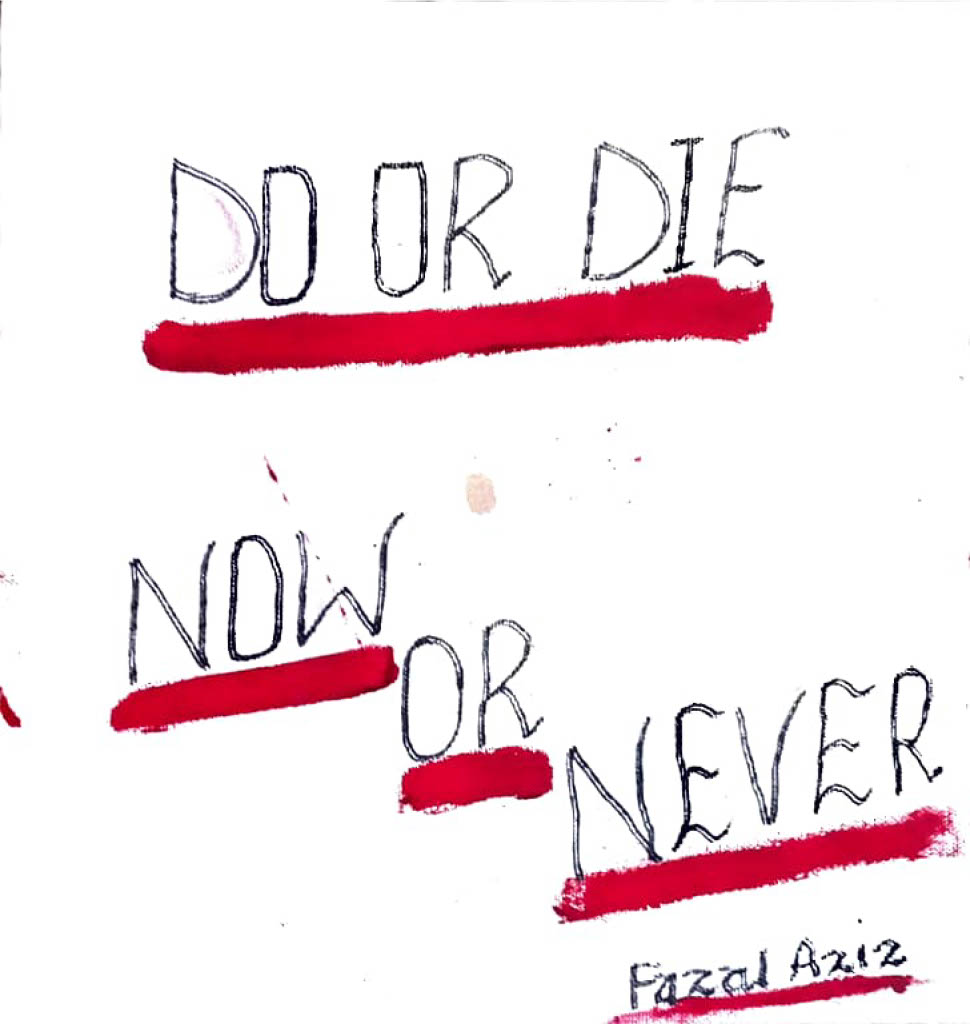 DO OR DIE
NOW
OR
NEVER
Fazal Aziz